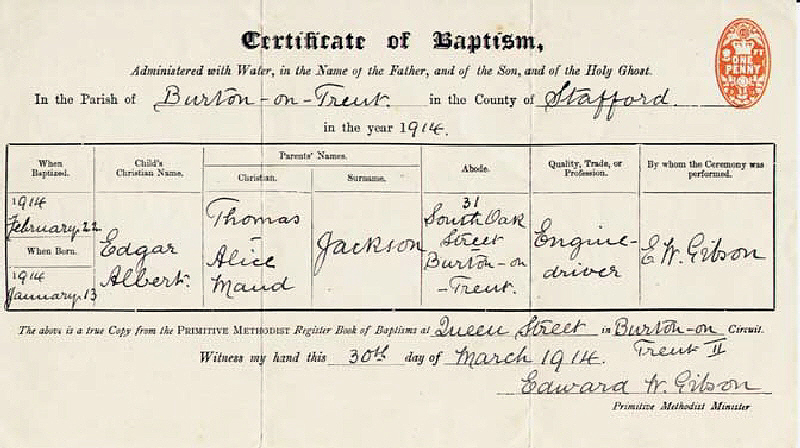 Certificate of Baptism,
ONE PENNY
Administered with Water, in the Name of the Father, and of the Son, and of the Holy Ghost.
In the Parish of Burton-on-Trent. in the County of Stafford.
in the year 1914.
When Baptized.
Child's Christian Name.
Parents' Names.
Christian.
Surname.
Abode.
Quality, Trade, or Profession.
By whom the Ceremony was performed.
1914
February. 22
When Born.
1914
January. 13
Edgar
Albert.
Thomas
-
Alice
Maud
Jackson
31
South Oak
Street
Burton-on
-Trent.
Engine-
driver
E W. Gibson
The above is a true Copy from the PRIMITIVE METHODIST Register Book of Baptisms at Queen Street in Burton-on Circuit.
Trent II
Witness my hand this 30th day of March 1914.
Edward W. Gibson
Primitive Methodist Minister